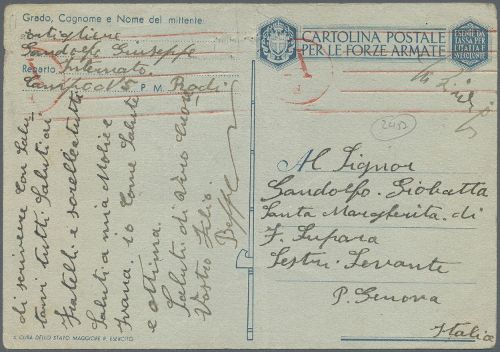 Grado, Cognome e Nome del mittente
Artigliere
Gandolfo Giuseppe
Reparto Internato
Campo N5 P. M. Rodi
di scrivere con Salu
tarvi tutti Saluti ai
Fratelli e sorelle tutti
Saluti a mia Moglie
Ivana io come Salute
e ottima.
Saluti di vero cuore
Vostro Filio
Beppe
A CURA DELLO STATO MAGGIORE R. ESERCITO
CARTOLINA POSTALE
PER LE FORZE ARMATE
ESENTE DA
TASSA PER
L'ITALIA E
Al Signor
Gandolfo Giobatta
Santa Margherita di
F. Supara
Sestri Levante
P. Genova
Italia